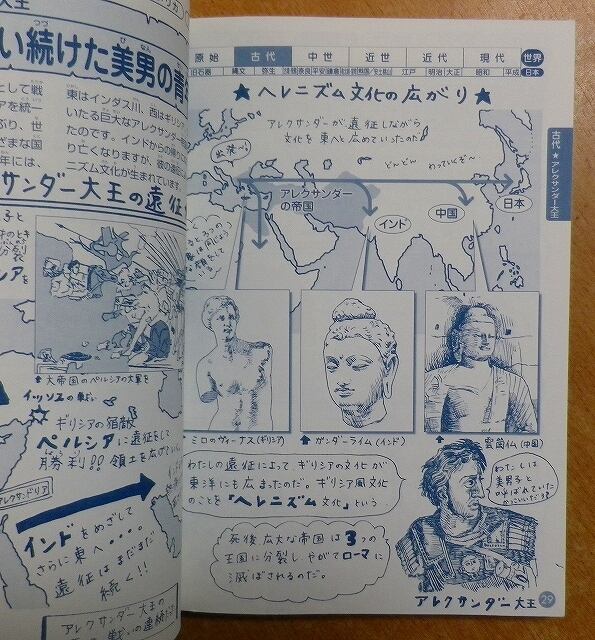 大王
い続けた美男の青
として戦
アを統一
ぶり、世
ざまな国
年には、
東はインダス川、西はギリシア
いたる巨大なアレクサンダー
たのです。インドからの帰り
り亡くなりますが、彼の遠征
ニズム文化が生まれています。
サンダー大王の遠征
子と
のとき
分裂
シアを
↑大帝国のペルシアの大軍を
イッソスの戦い
ギリシアの宿敵
ペルシアに遠征をして
勝利!!領土を広げ
アレクサンドリア
インドをめざして
さらに東へ…。
遠征はまだまだ
続く!!
アレクサンダー大王の
原始 古代 中世 近世 近代 現代 世界
旧石器 縄文 弥生 奈良 平安 鎌倉 江戸 明治 大正 昭和 平成 日本
★ヘレニズム文化の広がり★
アレクサンダーが遠征しながら
文化を東へと広めていったのだ!
出発〜!
どんどん
わっていくぞ〜
アレクサンダー
の帝国
インド
中国
日本
古代★アレクサンダー大王
ミロのヴィーナス(ギリシア)
↑ガンダーラ仏(インド)
↑雲崗仏(中国)
わたしの遠征によって、ギリシアの文化が
東洋にも広まったのだ。ギリシア風文化
のことを「ヘレニズム文化」という
死後広大な帝国は3つの
王国に分裂し、やがてローマに
滅ぼされるのだ。
わたしは
美男子と
呼ばれていた
アレクサンダー大王
29